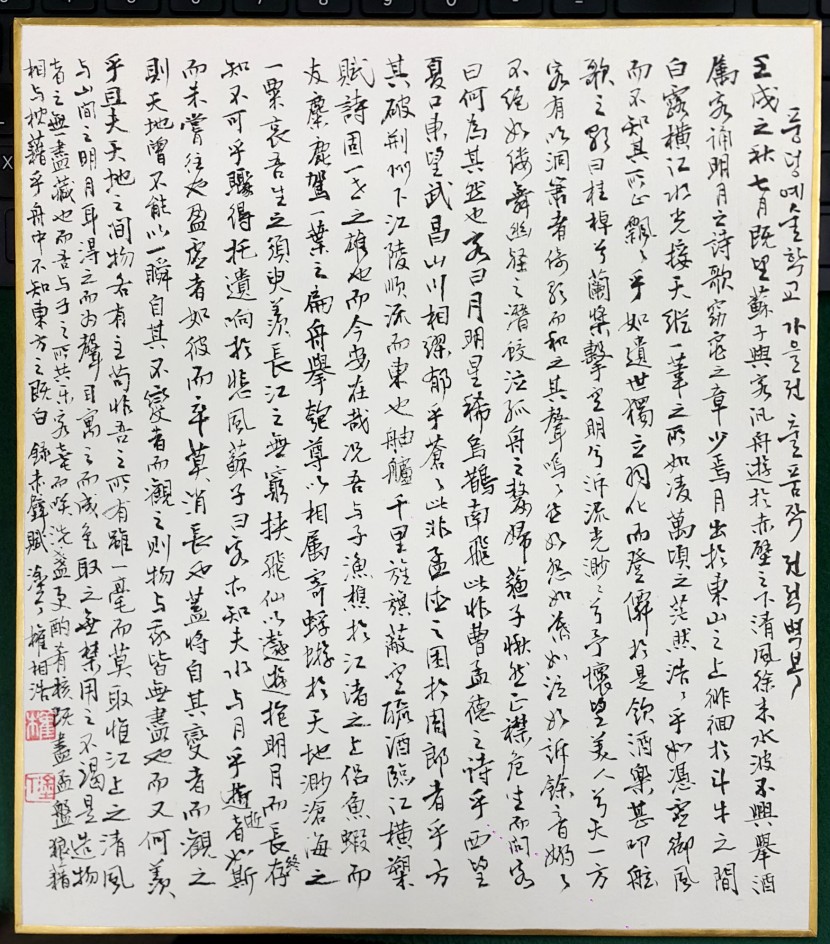 풍덩예술학교 가을전 출품작 전적벽부
壬戌之秋七月既望蘇子與客汎舟遊於赤壁之下清風徐来水波不興舉酒
属客誦明月之詩歌窈窕之章少焉月出於東山之上徘徊於斗牛之間
白露横江水光接天縱一葦之所如凌萬頃之茫然浩〻乎如憑虛御風
而不知其所止飄〻乎如遺世獨立羽化而登僊於是飲酒樂甚叩舷
歌之歌曰桂棹兮蘭槳擊空明兮泝流光渺〻兮予懷望美人兮天一方
客有吹洞簫者倚歌而和之其聲嗚〻然如怨如慕如泣如訴餘音嫋〻
不絶如縷舞幽壑之潛蛟泣孤舟之嫠婦蘇子愀然正襟危坐而問客
曰何為其然也客曰月明星稀烏鵲南飛此非曹孟德之詩乎西望
夏口東望武昌山川相繆郁乎蒼〻此非孟德之困於周郎者乎方
其破荆州下江陵順流而東也舳艫千里旌旗蔽空酾酒臨江橫槊
賦詩固一世之雄也而今安在哉況吾与子漁樵於江渚之上侶魚蝦而
友麋鹿駕一葉之扁舟舉匏尊以相属寄蜉蝣於天地渺滄海之
一粟哀吾生之須臾羨長江之無窮挾飛仙以遨遊抱明月而長存終
知不可乎驟得托遺响於悲風蘇子曰客亦知夫水与月乎逝者如斯
而未嘗往也盈虛者如彼而卒莫消長也蓋將自其變者而觀之
則天地曾不能以一瞬自其不變者而觀之則物与我皆無盡也而又何羨
乎且夫天地之間物各有主苟非吾之所有雖一毫而莫取惟江上之清風
与山間之明月耳得之而为聲目寓之而成色取之無禁用之不竭是造物
者之無盡藏也而吾与子之所共乐客喜而咲洗盞更酌肴核既盡盃盤狼藉
相与枕藉乎舟中不知東方之既白 錄赤壁賦 塗丁 權相浩
權
塗丁